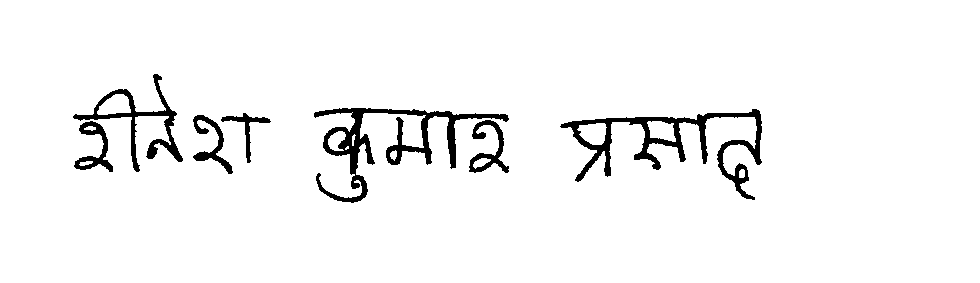 रीनेश कुमार प्रसाद